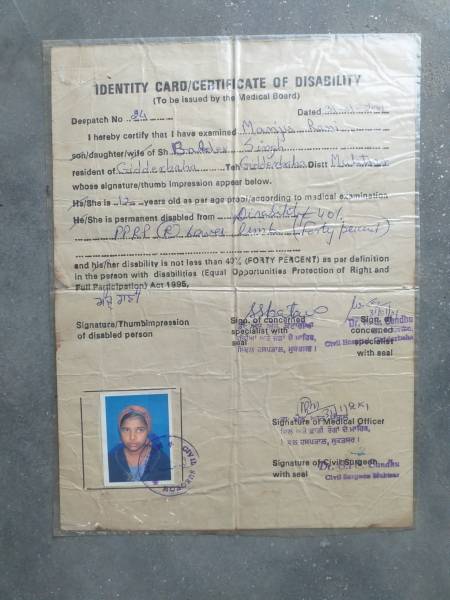 IDENTITY CARD/CERTIFICATE OF DISABILITY
(To be issued by the Medical Board)
Despatch No 24 Dated
I hereby certify that I have examined Manju Rani
son/daughter/wife of Sh Baldev Singh
resident of Gidderbaha Teh Gidderbaha Distt Muktsar
whose signature/thumb impression appear below.
He/She is years old as per age proof/according to medical examination
He/She is permanent disabled from Disability 40%
PPRP (R) Lower limb (Forty percent)
and his/her disability is not less than 40% (FORTY PERCENT) as per definition
in the person with disabilities (Equal Opportunities Protection of Right and
Full Participation) Act 1995,
Signature/Thumbimpression
of disabled person
Sign. of concerned
specialist with
seal
ਮੁਕਤਸਰ ।
Sign. of
concerned
specialist
with seal
Civil Hospital
Signature of Medical Officer
ਮੁਕਤਸਰ ।
Signature of Civil Surgeon
with seal
Civil Surgeon Muktsar